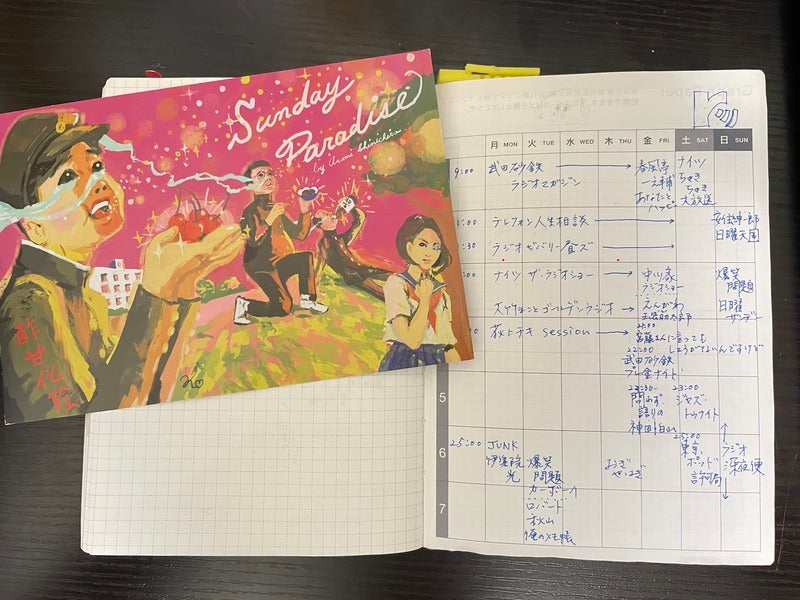 Sunday
Paradise
by Asami Shinichiro
酢甘化陸
月 MON 火 TUE 水 WED 木 THU 金 FRI 土 SAT 日 SUN
9:00 武田砂鉄
ラジオマガジン
春風亭
一之輔
あなたと
ハッピー
ナイツ
ちゃき
ちゃき
大放送
テレフォン人生相談
安住紳一郎
日曜天国
:30 ラジオビバリー昼ズ
ナイツ ザ・ラジオショー
中川家
ラジオショー
爆笑
問題
日曜
サンデー
大竹まことゴールデンラジオ
えんがわ
荻上チキ session
宮藤さんに言っても
しょうがないんですけど
22:00
武田砂鉄
プレ金ナイト
23:30-
問わず
語りの
神田伯山
23:00
ジャズ・
トゥナイト
5
6
7
25:00 JUNK
伊集院
光
爆笑
問題
カーボーイ
おぎ
やはぎ
25:00
東京
ポッド
許可局
ラジオ
深夜便
ロバート
秋山
俺のメモ帳